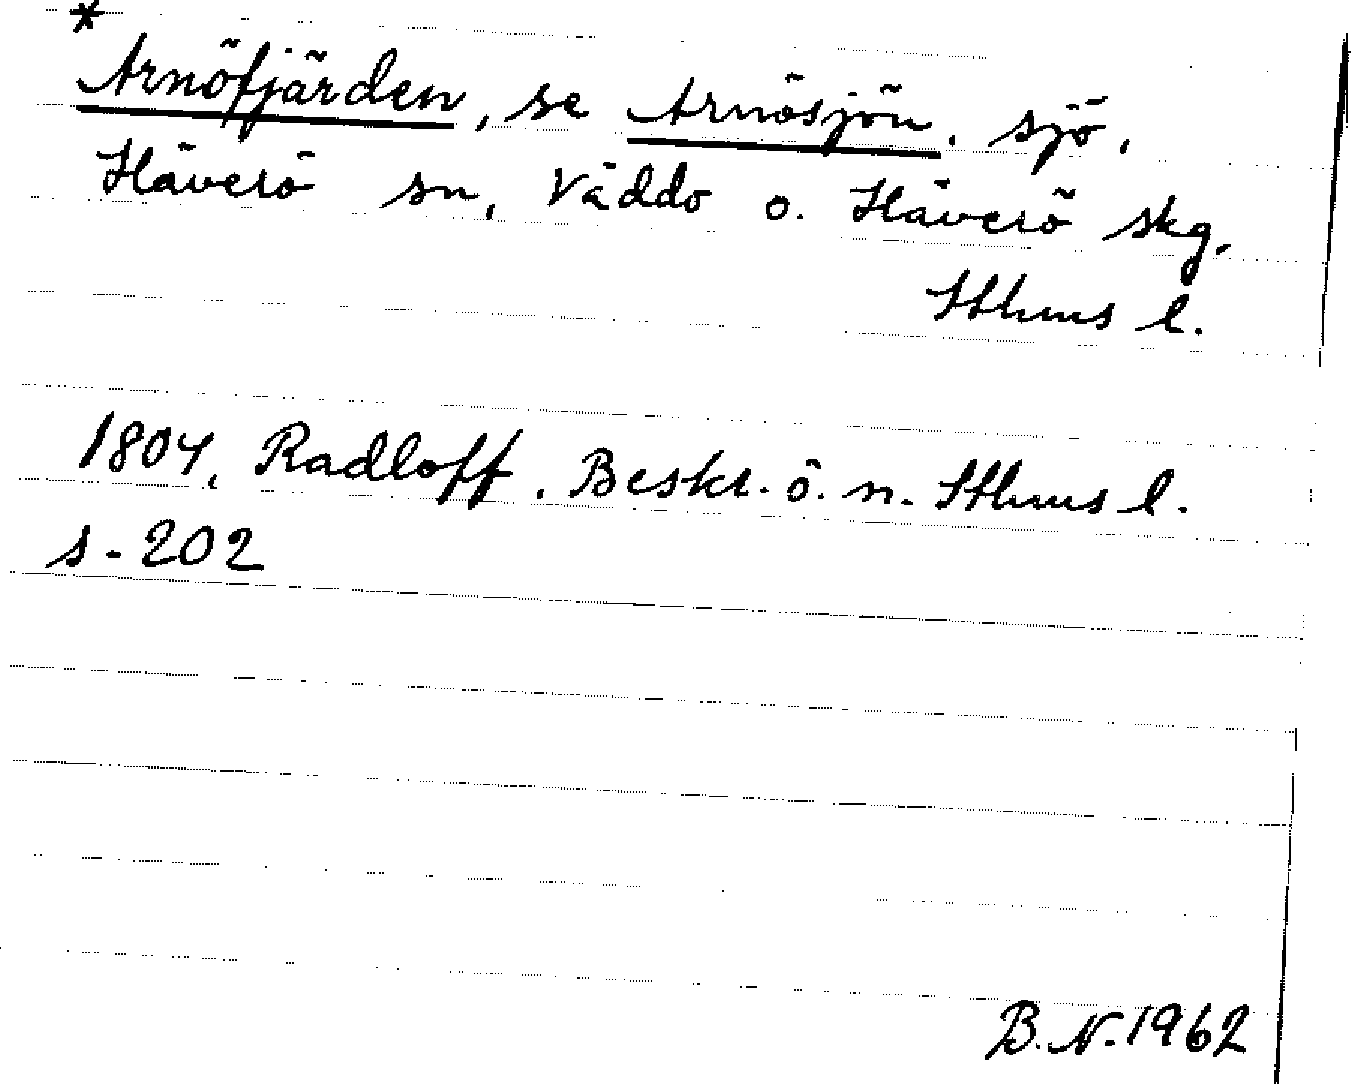 *
Arnöfjärden, se Arnösjön, sjö,
Häverö sn, Väddö o. Häverö skg,
Sthms l.
1804, Radloff, Beskr. ö. n. Sthms l.
s. 202
B.N. 1962